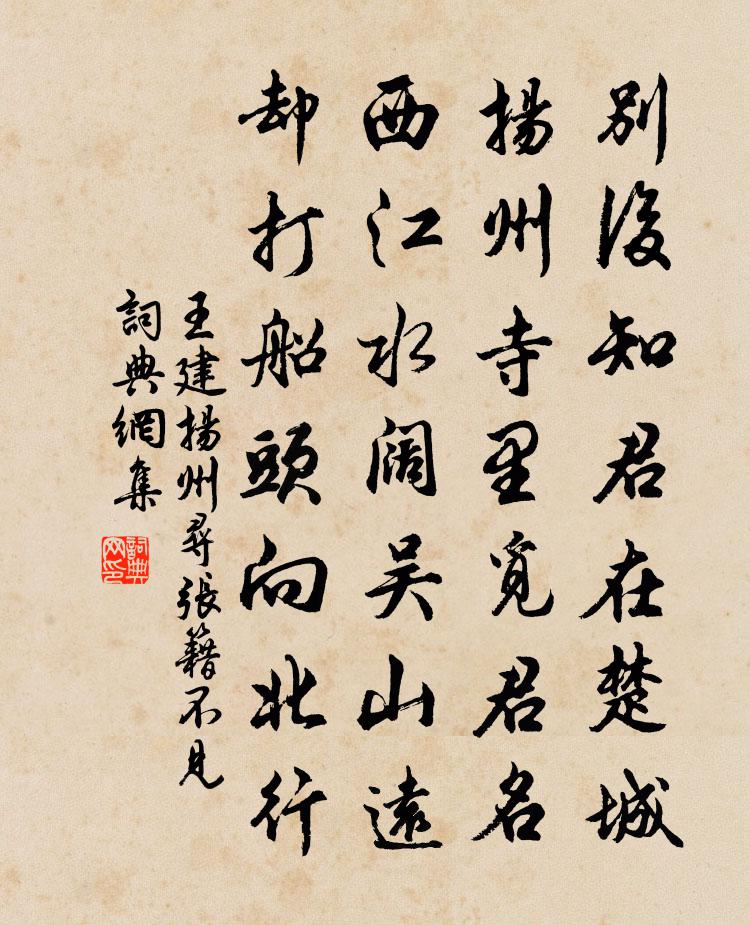 別後知君在楚城
揚州寺里覓君名
西江水闊吳山遠
却打船頭向北行
王建揚州尋張籍不見
詞典網集
詞典
网印